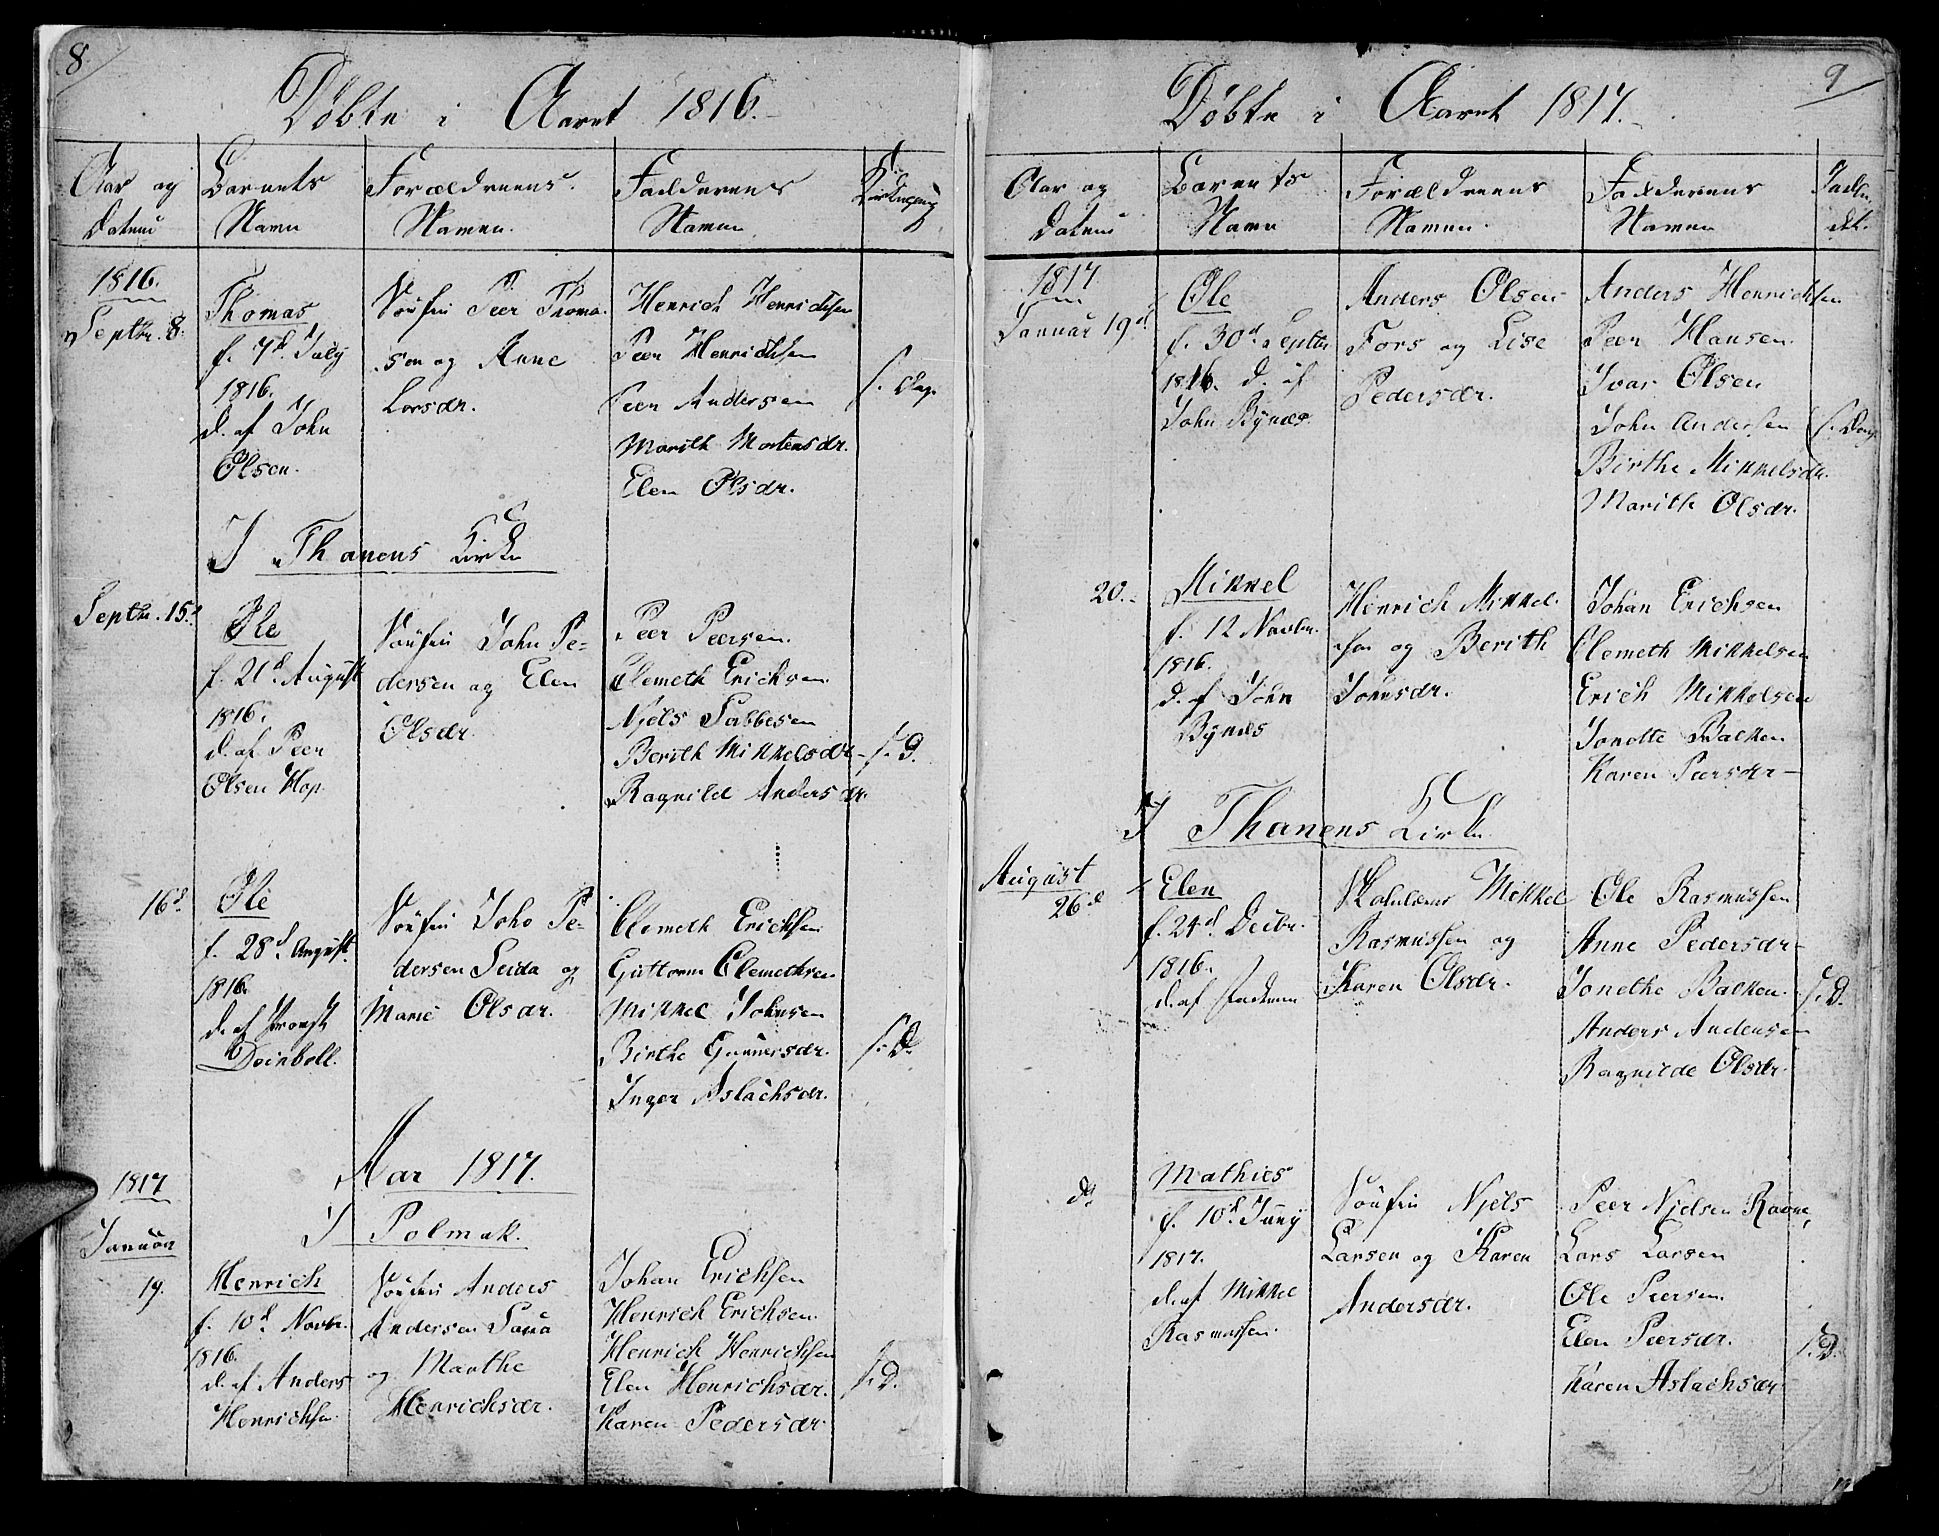 8.
Döbte i Aaret 1816.
Aar og Datum
Barnets Navn
Forældrenes Navne.
Faddernes Navne
1816.
Septbr. 8.
Thomas
f. 7d. July
1816.
d. af John
Olsen.
Söefin Peer Thoma-
sen og Anne
Larsdr.
Henrich Henrichsen
Peer Henrichsen
Peer Andersen
Marith Mortensdr.
Elen Olsdr.
s. Dag.
I Thanens Kirke
Septbr. 15d
Ole
f. 21d August
1816.
d. af Peer
Olsen Hop.
Söefin John Pe-
dersen og Elen
Olsdr.
Peer Peersen.
Clemeth Erichsen.
Njels Sabbesen
Berith Mikkelsdr.
Ragnild Andersdr.
s. D.
16d.
Ole
f. 28d August.
1816.
d. af Provst
Deinboll.
Söefin Joho Pe-
dersen Seida og
Marie Olsdr.
Clemeth Erichsen
Guttorm Clemethsen
Mikkel Johnsen
Birthe Gunnersdr.
Inger Aslachsdr.
s. D.
Aar 1817.
I Polmak.
1817
Januar
19.
Henrich
f. 10d Novbr.
1816.
d. af Anders
Henrichsen.
Söefin Anders
Andersen
og Marthe
Henrichsdr.
Johan Erichsen
Henrich Erichsen.
Henrich Henrichsen
Elen Henrichsdr.
Karen Pedersdr.
s. D.
9
Döbte i Aaret 1817.
Aar og Datum
Barnets Navn
Forældrenes Navne.
Faddernes Navne
1817
Januar 19d.
Ole
f. 30d Septbr
1816. d. af
John Bynæs.
Anders Olsen
Fors og Lise
Pedersdr.
Anders Henrichsen
Peer Hansen.
Ivar Olsen
John Andersen
Birthe Mikkelsdr.
Marith Olsdr.
s. Dag.
20.
Mikkel
f. 12 Novbr.
1816.
d. af John
Bynæs
Henrich Mikkel-
sen og Berith
Johnsdr.
Johan Erichsen
Clemeth Mikkelsen
Erich Mikkelsen
Jonette Balken
Karen Peersdr
I Thanens Kirke.
August
26d
Elen
f. 24d. Decbr.
1816.
d. af
Mikkel
Rasmussen og
Karen Olsdr.
Ole Rasmussen
Anne Pedersdr
Jonethe Balken.
Anders Andersen
Ragnilde Olsdr.
s. D.
do
Mathies
f. 10d. Juny
1817.
d. af Mikkel
Rasmussen.
Söefin Njels
Larsen og Karen
Andersdr.
Peer Njelsen Ravne,
Lars Larsen
Ole Peersen.
Elen Peersdr.
Karen Aslachsdr
s. D.